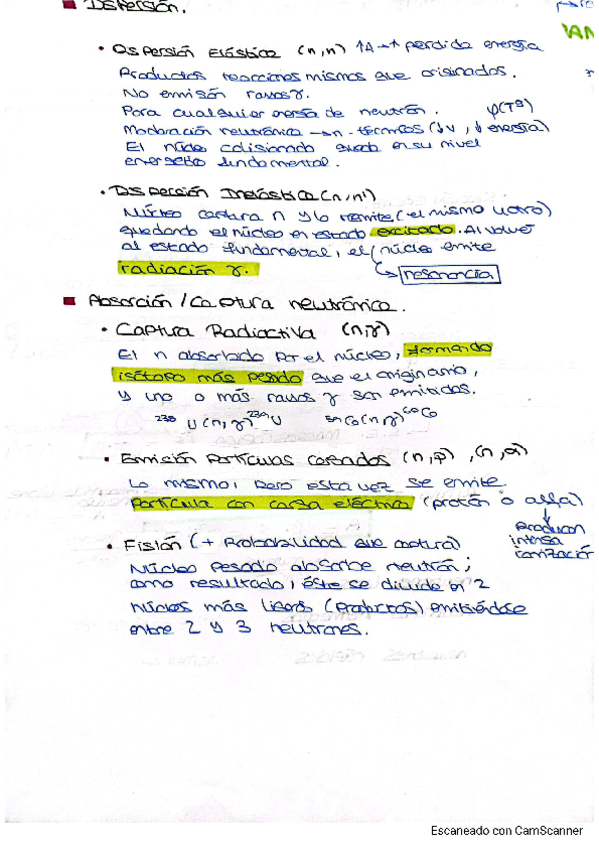 Dispersión.
• Dispersión Elástica (n,n) ↑A → ↑ perdida energía
Productos reacciones mismos que originados.
No emisión rayos γ.
Para cualquier energía de neutrón. φ(Tª)
Moderación neutrónica → n. térmicos (↓v, ↓ energía)
El núcleo colisionado queda en su nivel
energético fundamental.
• Dispersión Inelástica (n,n')
Núcleo captura n y lo remite (el mismo u otro)
quedando el núcleo en estado excitado. Al volver
al estado fundamental, el núcleo emite
radiación γ.
resonancia
Absorción / Captura neutrónica.
• Captura Radiactiva (n,γ)
El n absorbido por el núcleo, formando
isótopo más pesado que el originario,
y uno o más rayos γ son emitidos.
238 U (n,γ) 239 U 59 Co (n,γ) 60 Co
• Emisión Partículas Cargadas (n,p), (n,α)
Lo mismo, pero esta vez se emite
partícula con carga eléctrica (protón ó alfa)
producen
intensa
ionización
• Fisión (+ Probabilidad que captura)
Núcleo pesado absorbe neutrón;
como resultado, éste se divide en 2
núcleos más ligeros (Productos) emitiéndose
entre 2 y 3 neutrones.
Escaneado con CamScanner